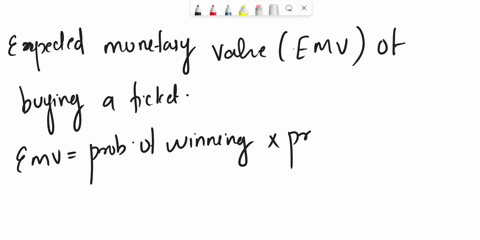 Expected monetary value (EMV) of
buying a ticket.
EMV = prob. of winning x pr